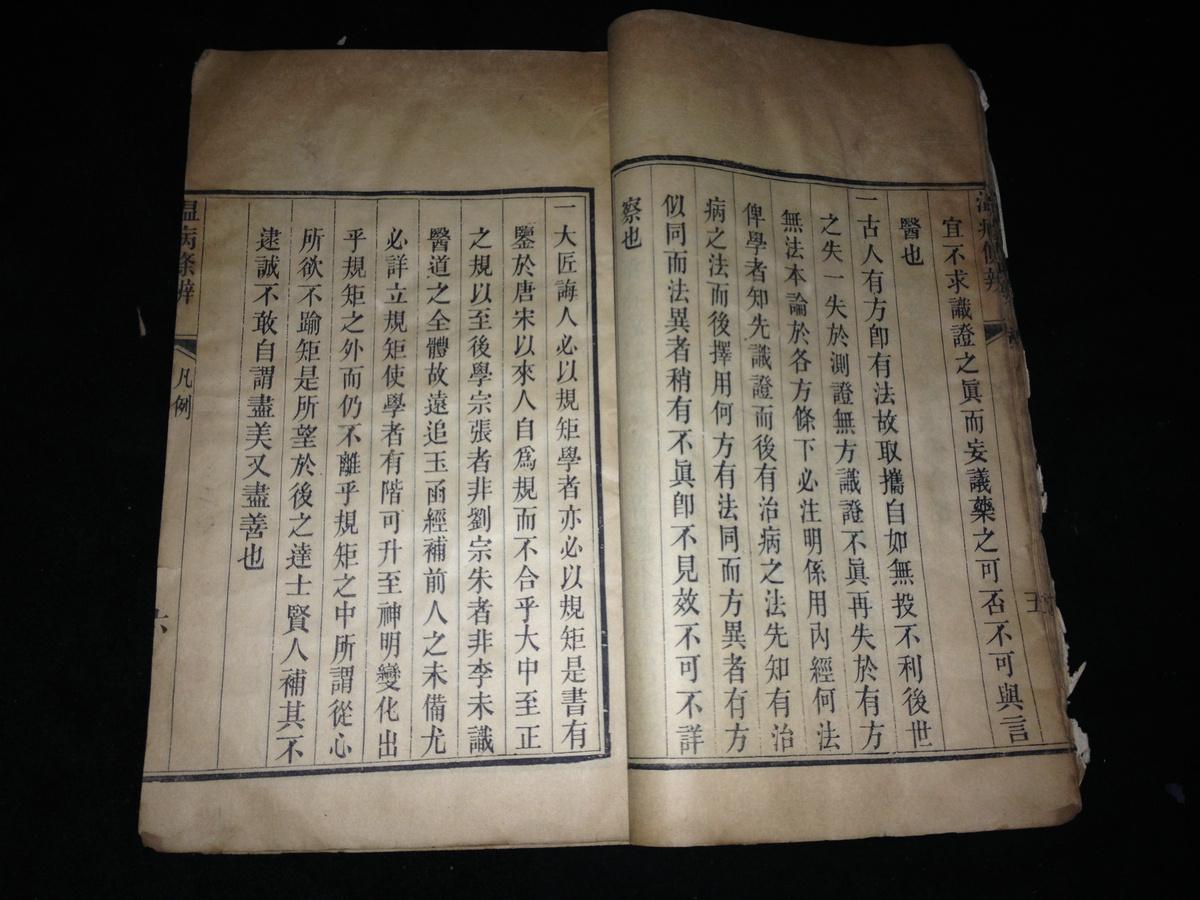 宜不求識證之眞而妄議藥之可否不可與言
醫也
一古人有方卽有法故取攜自如無投不利後世
之失一失於測證無方識證不眞再失於有方
無法本論於各方條下必注明係用內經何法
俾學者知先識證而後有治病之法先知有治
病之法而後擇用何方有法同而方異者有方
似同而法異者稍有不眞卽不見效不可不詳
察也
一大匠誨人必以規矩學者亦必以規矩是書有
鑒於唐宋以來人自爲規而不合乎大中至正
之規以至後學宗張者非劉宗朱者非李未識
醫道之全體故遠追玉函經補前人之未備尤
必詳立規矩使學者有階可升至神明變化出
乎規矩之外而仍不離乎規矩之中所謂從心
所欲不踰矩是所望於後之達士賢人補其不
逮誠不敢自謂盡美又盡善也
温病條辨
凡例
六